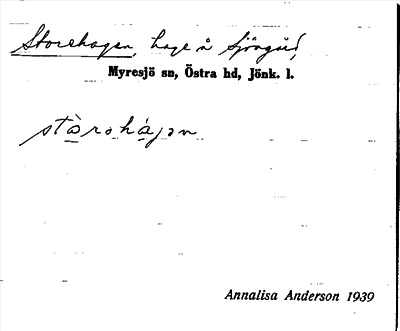 Storehagen, hage å Sjögård,
Myresjö sn, Östra hd, Jönk. l.
stàrəhá̱gən
Annalisa Anderson 1939